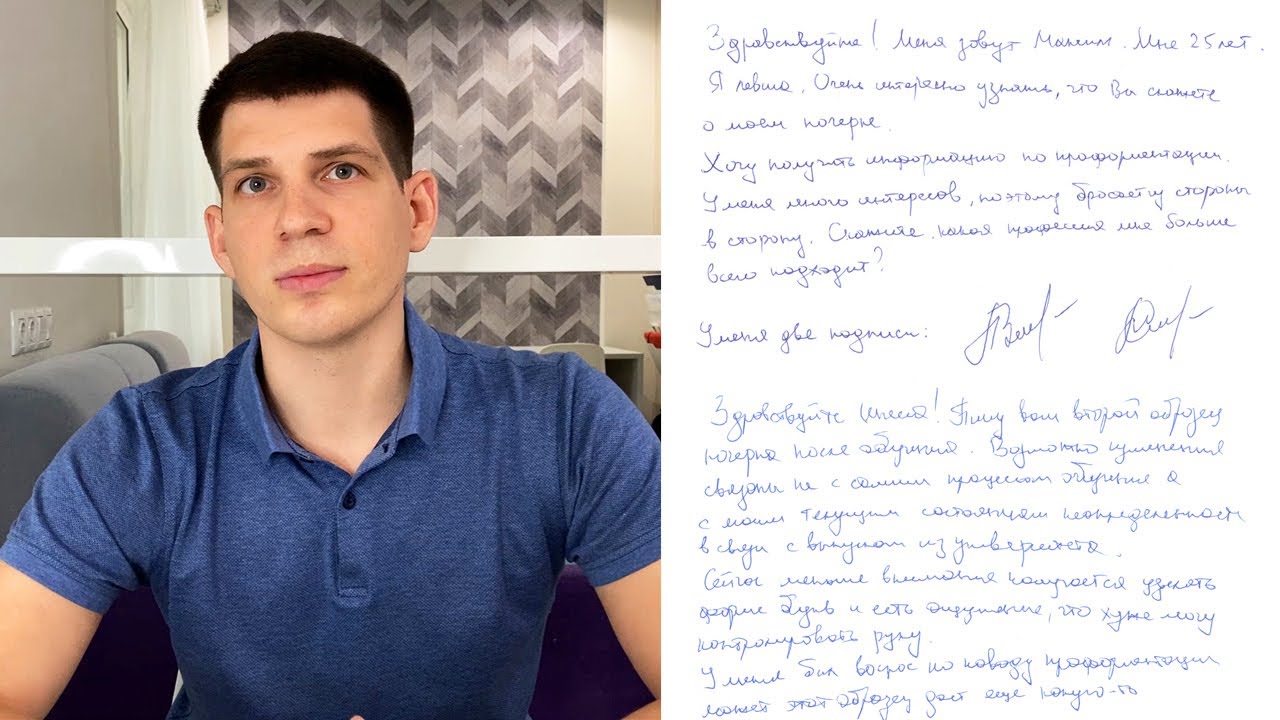 Здравствуйте! Меня зовут Максим. Мне 25 лет.
Я левша. Очень интересно узнать, что Вы скажете
о моем почерке.
Хочу получить информацию по профориентации.
У меня много интересов, поэтому бросает из стороны
в сторону. Скажите, какая профессия мне больше
всего подходит?
У меня две подписи:
Здравствуйте Инесса! Пишу вам второй образец
почерка после обучения. Возможно изменения
связаны не с самим процессом обучения а
с моим текущим состоянием неопределенности
в связи с выпуском из университета.
Сейчас меньше внимания получается уделять
форме букв и есть ощущение, что хуже могу
контролировать руку.
У меня был вопрос по поводу профориентации
может этот образец даст еще какую-то